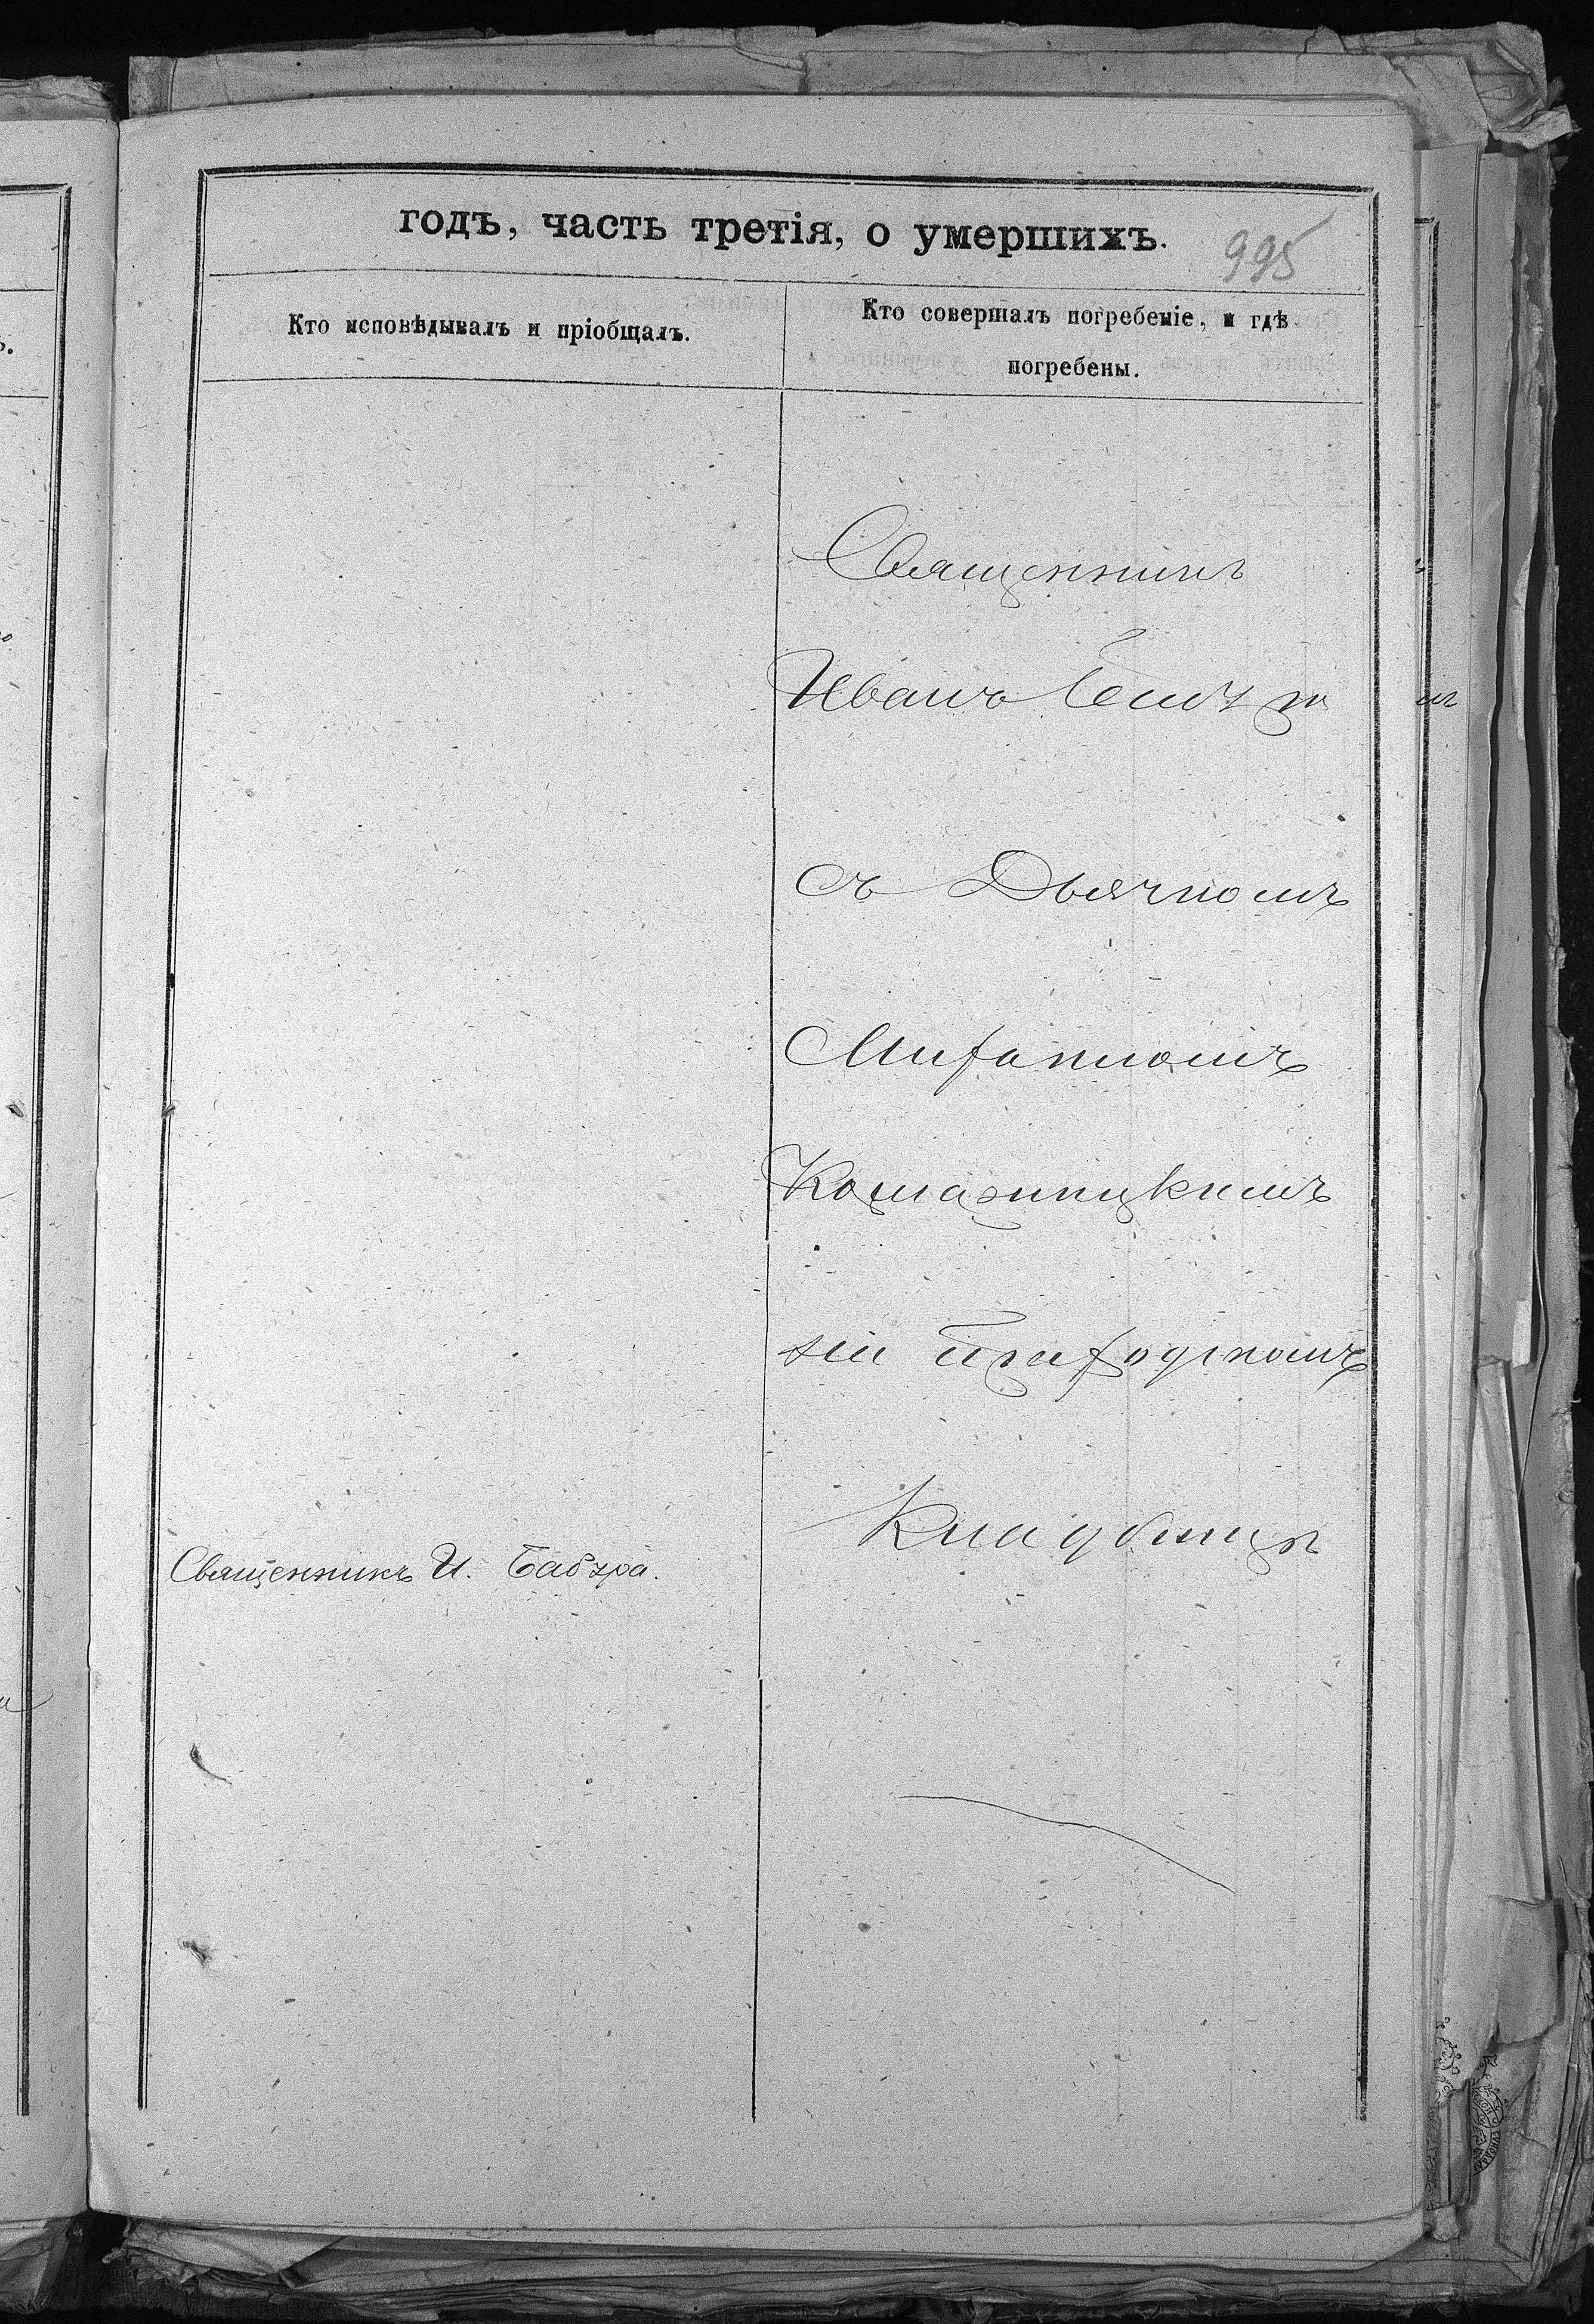 годъ, часть третія, о умершихъ.
995
Кто исповѣдывалъ и пріобщалъ.
Кто совершалъ погребеніе, и гдѣ
погребены.
Священникъ
Иванъ
съ Дьячкомъ
Михаиломъ
на приходскомъ
Кладбищѣ
Священникъ И. Бабура.